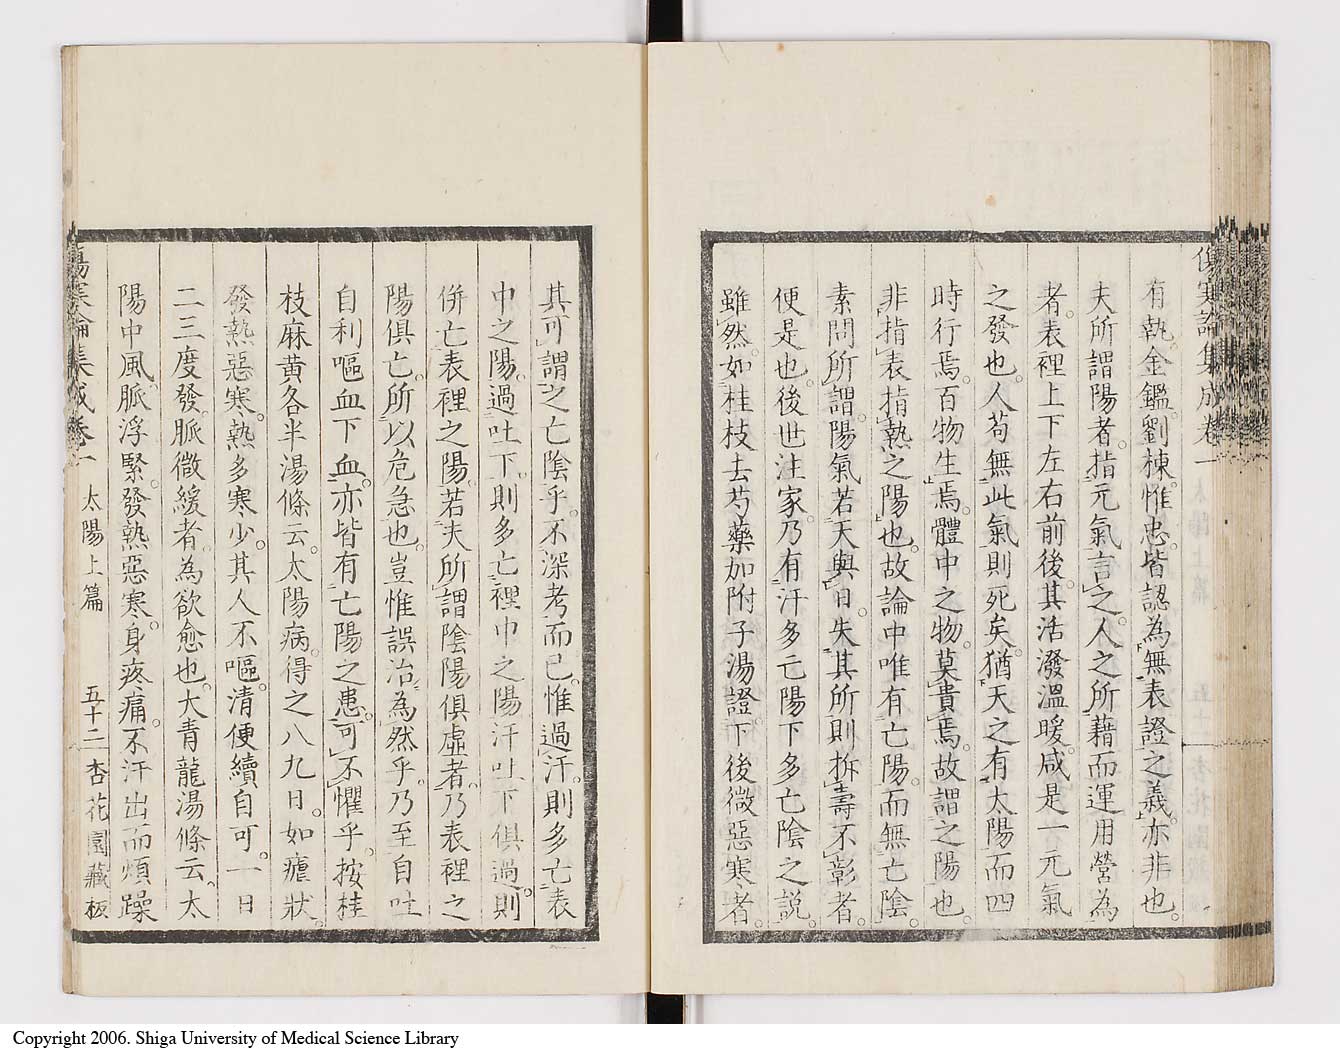 傷寒論集成卷一
有執金鑑劉棟惟忠皆認為無表證之義亦非也
夫所謂陽者指元氣言之人之所藉而運用營為
者表裡上下左右前後其活潑溫暖咸是一元氣
之發也人苟無此氣則死矣猶天之有太陽而四
時行焉百物生焉體中之物莫貴焉故謂之陽也
非指表指熱之陽也故論中唯有亡陽而無亡陰
素問所謂陽氣若天與日失其所則折壽不彰者
便是也後世注家乃有汗多亡陽下多亡陰之說
雖然如桂枝去芍藥加附子湯證下後微惡寒者
其可謂之亡陰乎不深考而已惟過汗則多亡表
中之陽過吐下則多亡裡中之陽汗吐下俱過則
併亡表裡之陽若夫所謂陰陽俱虛者乃表裡之
陽俱亡所以危急也豈惟誤治為然乎乃至自吐
自利嘔血下血亦皆有亡陽之患可不懼乎按桂
枝麻黃各半湯條云太陽病得之八九日如瘧狀
發熱惡寒熱多寒少其人不嘔清便續自可一日
二三度發脈微緩者為欲愈也大青龍湯條云太
陽中風脈浮緊發熱惡寒身疼痛不汗出而煩躁
傷寒論集成卷一 太陽上篇 五十二 杏花園藏板
Copyright 2006. Shiga University of Medical Science Library